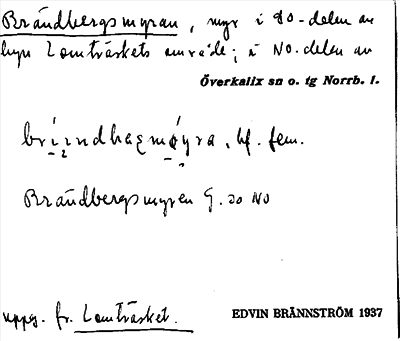 Brändbergsmyran, myr i SO-delen av
byn Lomträskets område; i NO-delen av
Överkalix sn o. tg Norrb. l.
bf. fem.
Brändbergsmyren G. 20 NO
uppg. fr. Lomträsket.
EDVIN BRÄNNSTRÖM 1937